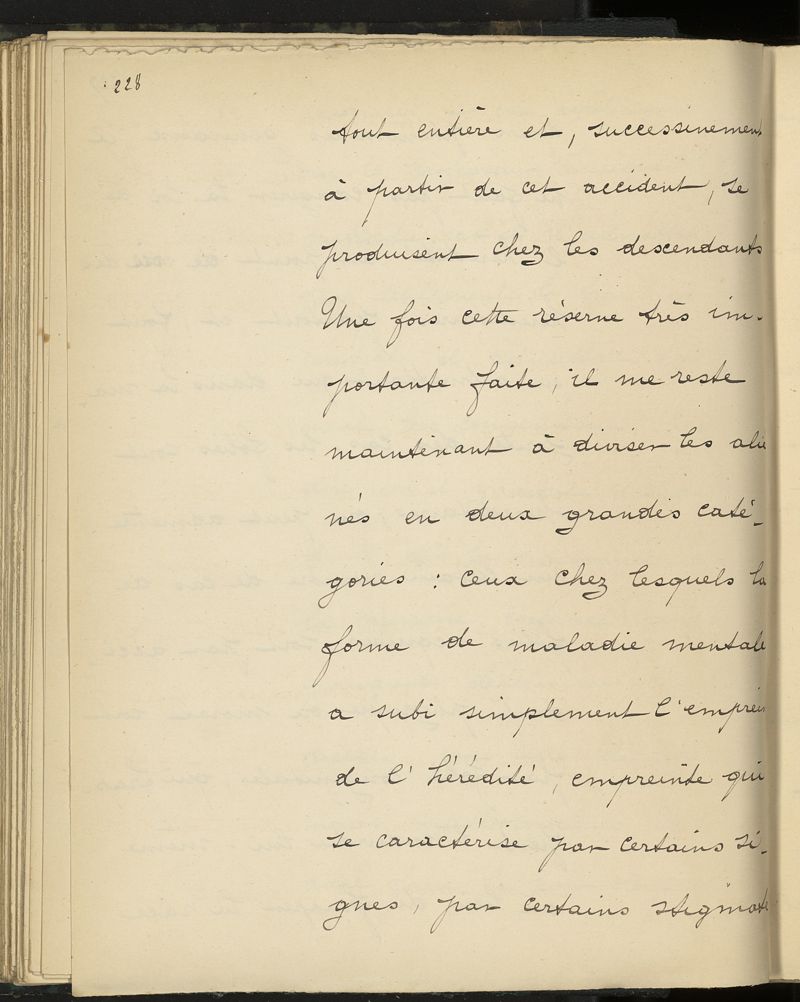 228
tout entière et, successivement
à partir de cet accident, se
produisent chez les descendants
Une fois cette réserve très im-
portante faite, il me reste
maintenant à diviser les alié
nés en deux grandes caté-
gories : ceux chez lesquels la
forme de maladie mentale
a subi simplement l'emprein
de l'hérédité, empreinte qui
se caractérise par certains si-
gnes, par certains stigmate